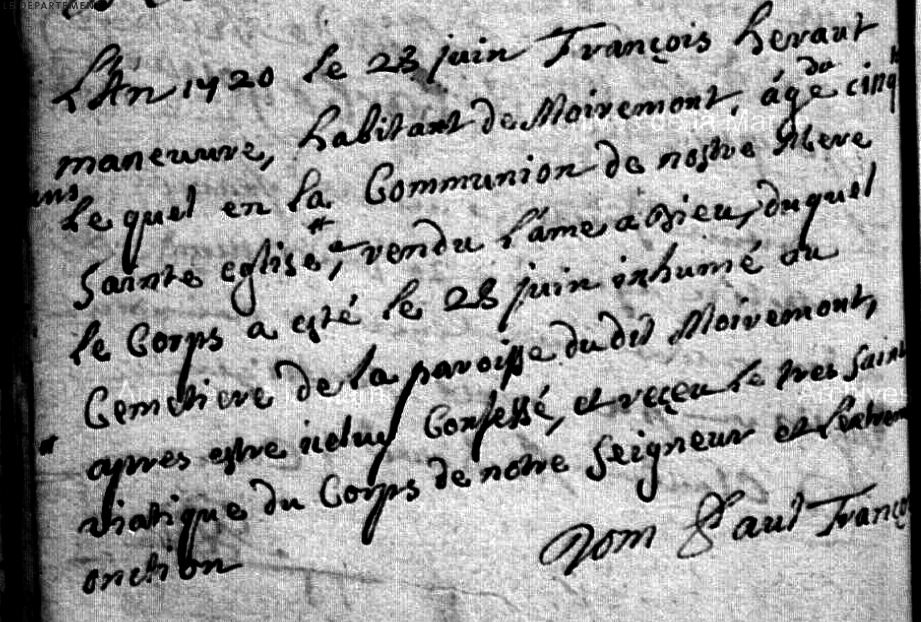 LE DEPARTEMEN
L'An 1720 le 23 juin François heraut
maneuvre, habitant de Moiremont, âgé de cinq
ans lequel en la Communion de nostre Mere
Sainte eglise, * a rendu l'ame a Dieu, duquel
le Corps a esté le 28 juin inhumé au
Cemetiere de la paroisse du dit Moiremont,
* apres estre Confessé, et reçeu le tres saint
viatique du Corps de notre Seigneur et l'extrem
onction
Dom Paul Franço